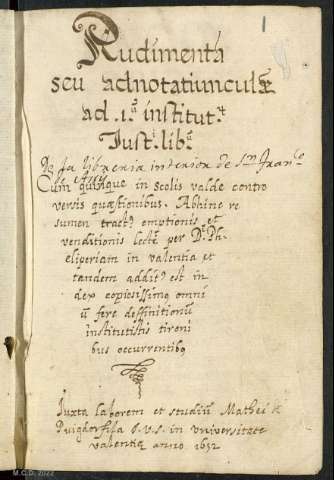 1
Rudimenta
seu adnotatiunculæ
ad .1. institut.
Just. lib.
De la libreria interior de Sn. Franco.
de Assy
Cum quinque in scolis valde contro
versis quæstionibus. Abhinc re
sumen tract9 emptionis et
venditionis lect9 per D. Ph.
eliperiam in valentia et
tandem addit9 est in
dex copiosissimq omni
ũ fere deffinitionũ
institutistis tironi
bus occurrentibq
Iuxta laborem et studiũ Mathei
Puigdorfila I.V.S. in universitate
valentiæ anno 1652
M.C.D. 2022